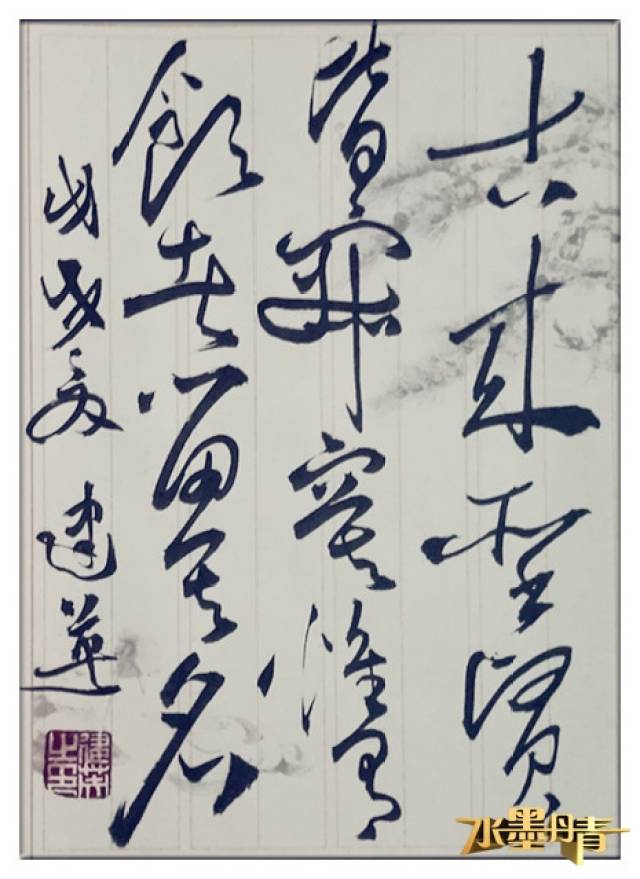 古来聖賢
皆寂寞惟有
飲者留其名
戊戌夏 建
水墨丹青